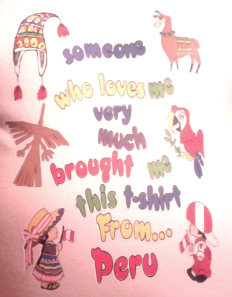 someone
who loves me
very
much
brought me
this t-shirt
From...
Peru